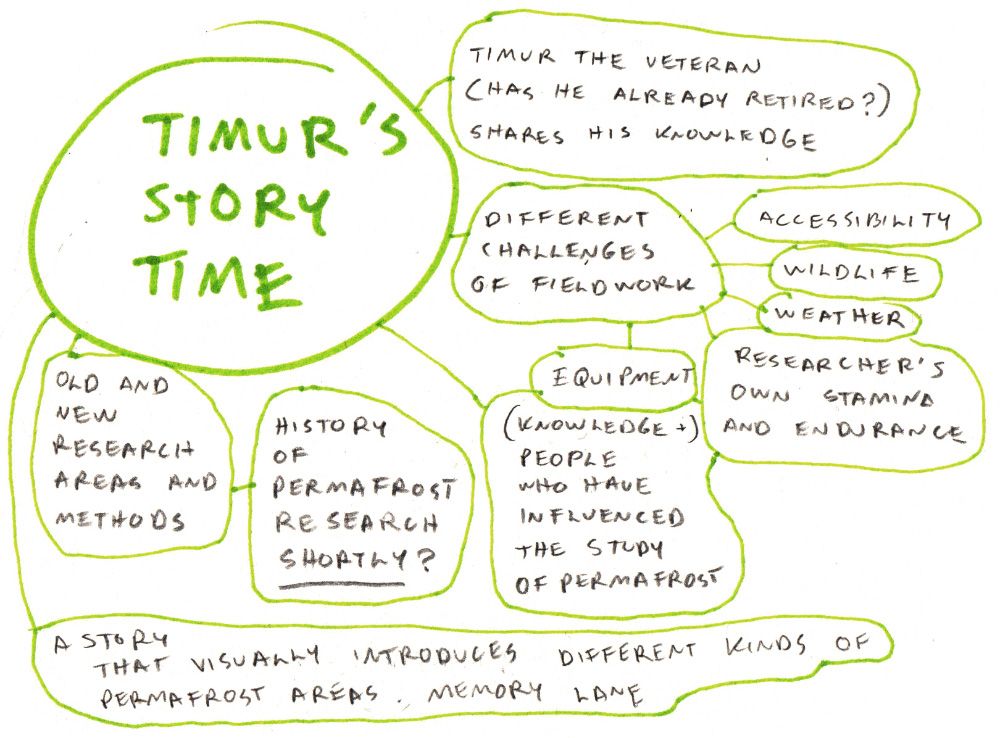 TIMUR'S
STORY
TIME
TIMUR THE VETERAN
(HAS HE ALREADY RETIRED?)
SHARES HIS KNOWLEDGE
DIFFERENT
CHALLENGES
OF FIELDWORK
ACCESSIBILITY
WILDLIFE
WEATHER
RESEARCHER'S
OWN STAMINA
AND ENDURANCE
EQUIPMENT
(KNOWLEDGE +)
PEOPLE
WHO HAVE
INFLUENCED
THE STUDY
OF PERMAFROST
OLD AND
NEW
RESEARCH
AREAS AND
METHODS
HISTORY
OF
PERMAFROST
RESEARCH
SHORTLY?
A STORY
THAT VISUALLY INTRODUCES DIFFERENT KINDS OF
PERMAFROST AREAS. MEMORY LANE